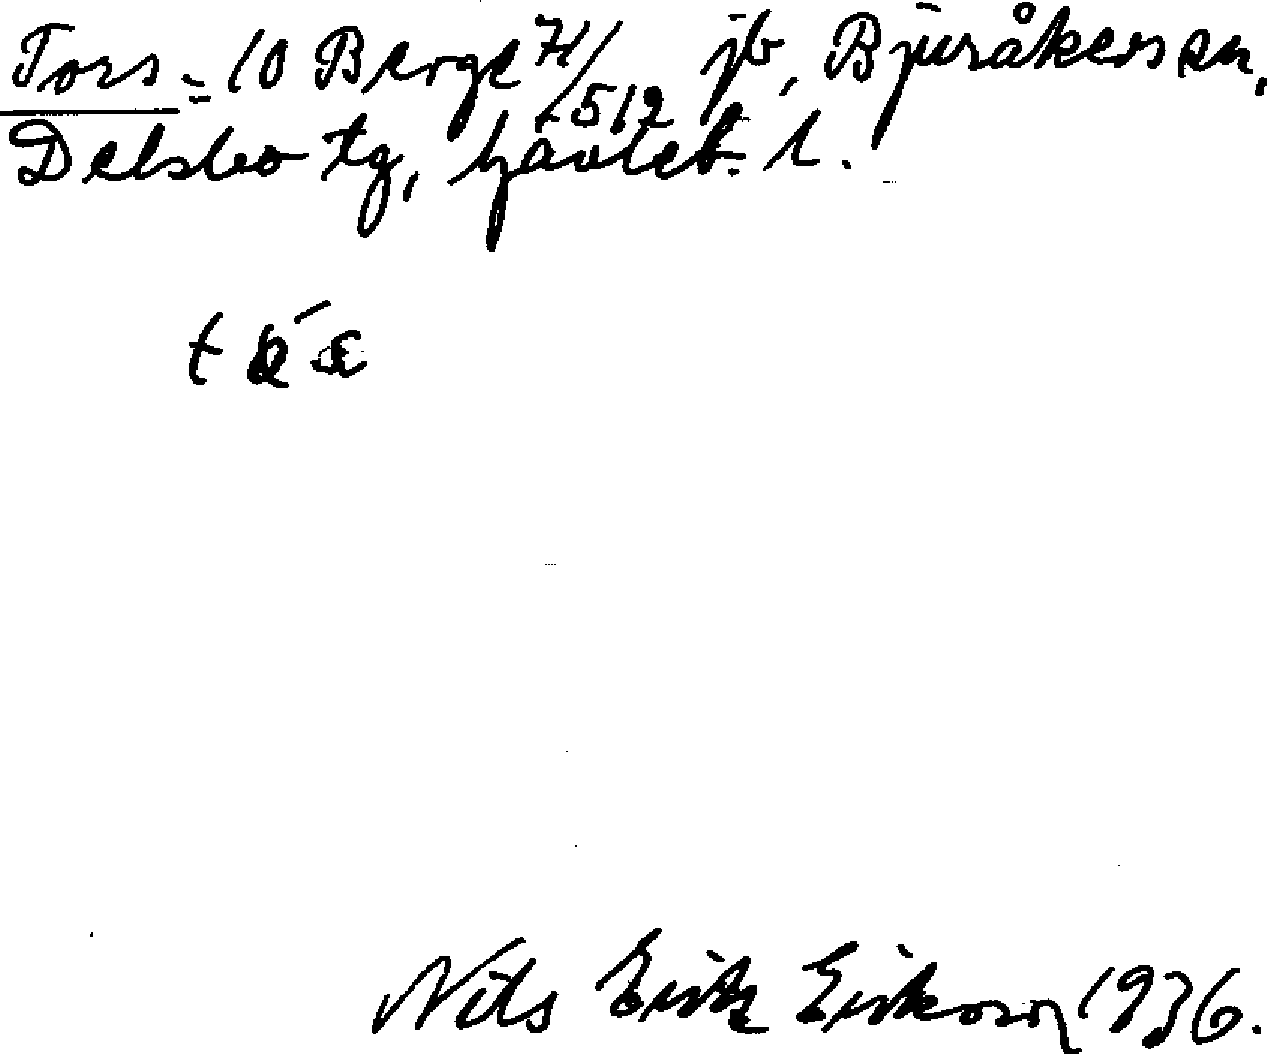 Tors = 10 Berge 71/512 jb, Bjuråkers sn,
Delsbo tg, Gävleb. l.
Nils Erik Eriksson 1936.